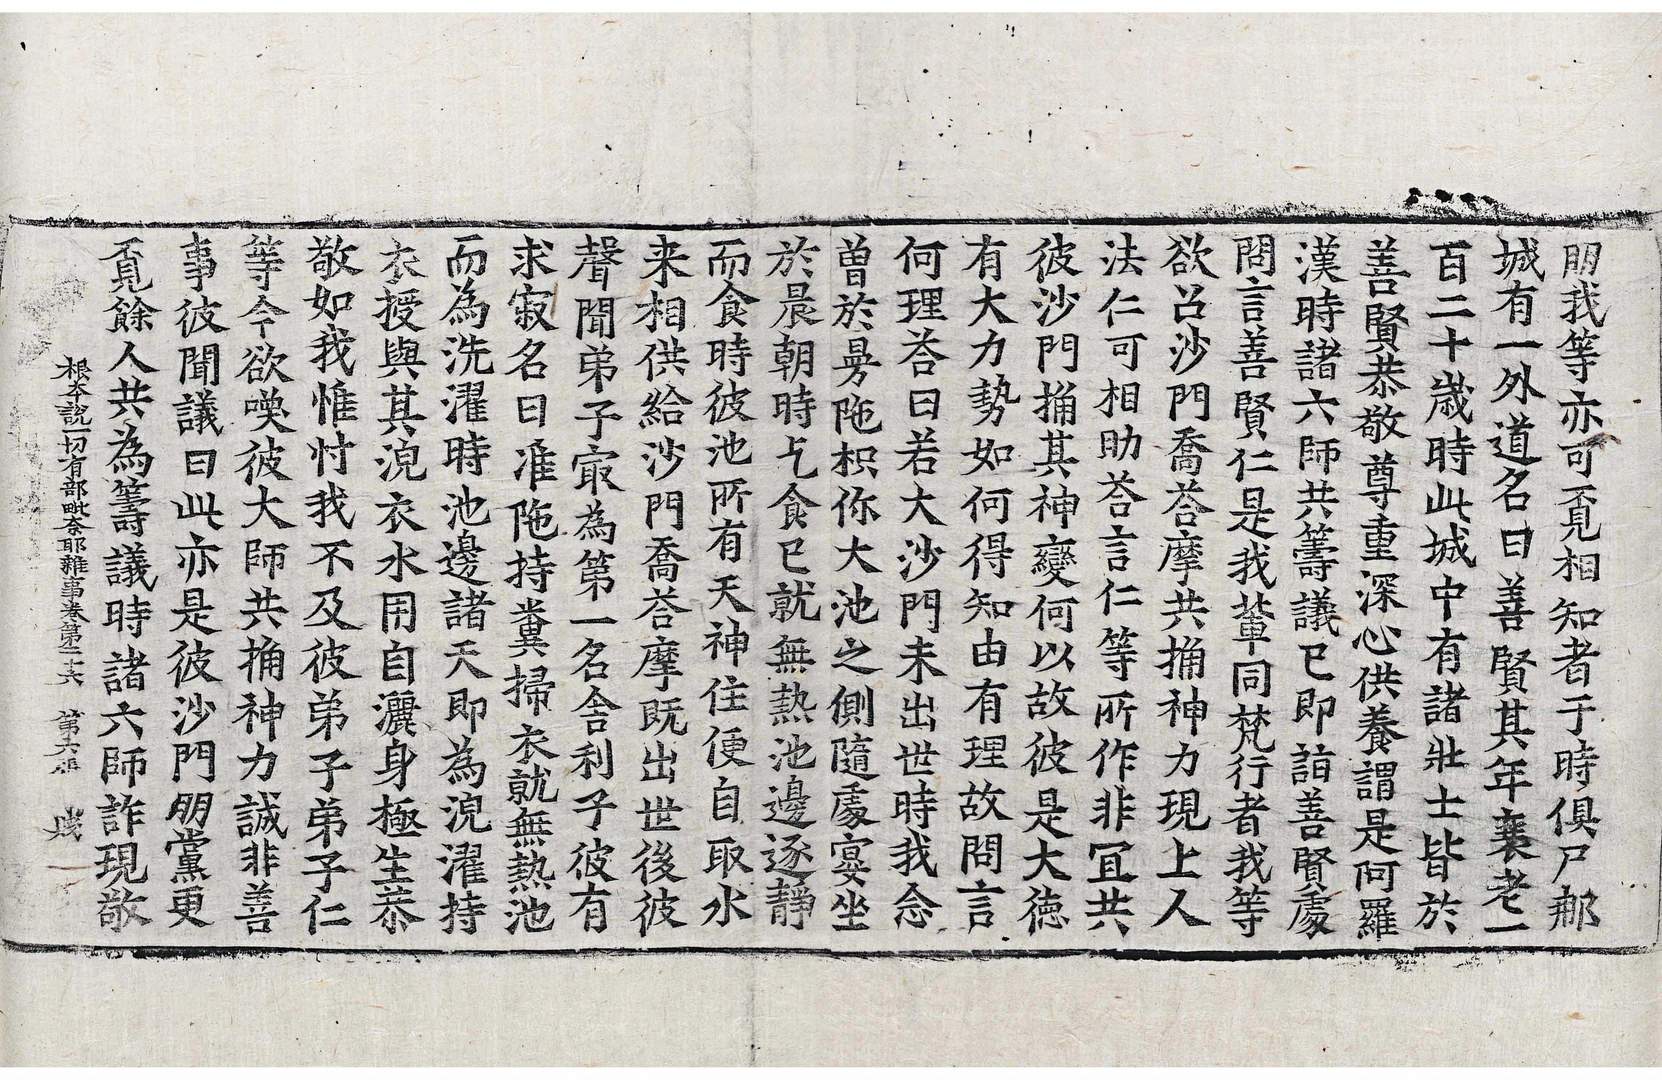 朋我等亦可覓相知者于時俱尸那
城有一外道名曰善賢其年衰老一
百二十歲時此城中有諸壯士皆於
善賢恭敬尊重深心供養謂是阿羅
漢時諸六師共籌議已即詣善賢處
問言善賢仁是我輩同梵行者我等
欲召沙門喬荅摩共捔神力現上人
法仁可相助荅言仁等所作非冝共
彼沙門捔其神變何以故彼是大德
有大力勢如何得知由有理故問言
何理荅曰若大沙門未出世時我念
曾於曼陁枳你大池之側隨處宴坐
於晨朝時乞食已就無熱池邊逐靜
而食時彼池所有天神住便自取水
来相供給沙門喬荅摩既出世後彼
聲聞弟子㝡為第一名舍利子彼有
求寂名曰准陁持糞掃衣就無熱池
而為洗濯時池邊諸天即為浣濯持
衣授與其浣衣水用自灑身極生恭
敬如我惟忖我不及彼弟子弟子仁
等今欲喚彼大師共捔神力誠非善
事彼聞議曰此亦是彼沙門朋黨更
覓餘人共為籌議時諸六師詐現敬
根本說一切有部毗奈耶雜事卷第二十六 第六張